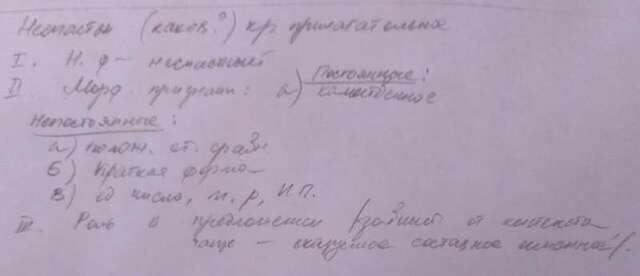 (каков?) кр. прилагательное
I. Н. ф –
II Морф. признаки: а) Постоянные: качественное
Непостоянные:
а) полож. ст. сравн
б) Краткая форма
в) ед число, м. р, И.П.
III. Роль в предложении (зависит от контекста
чаще – сказуемое составное именное).